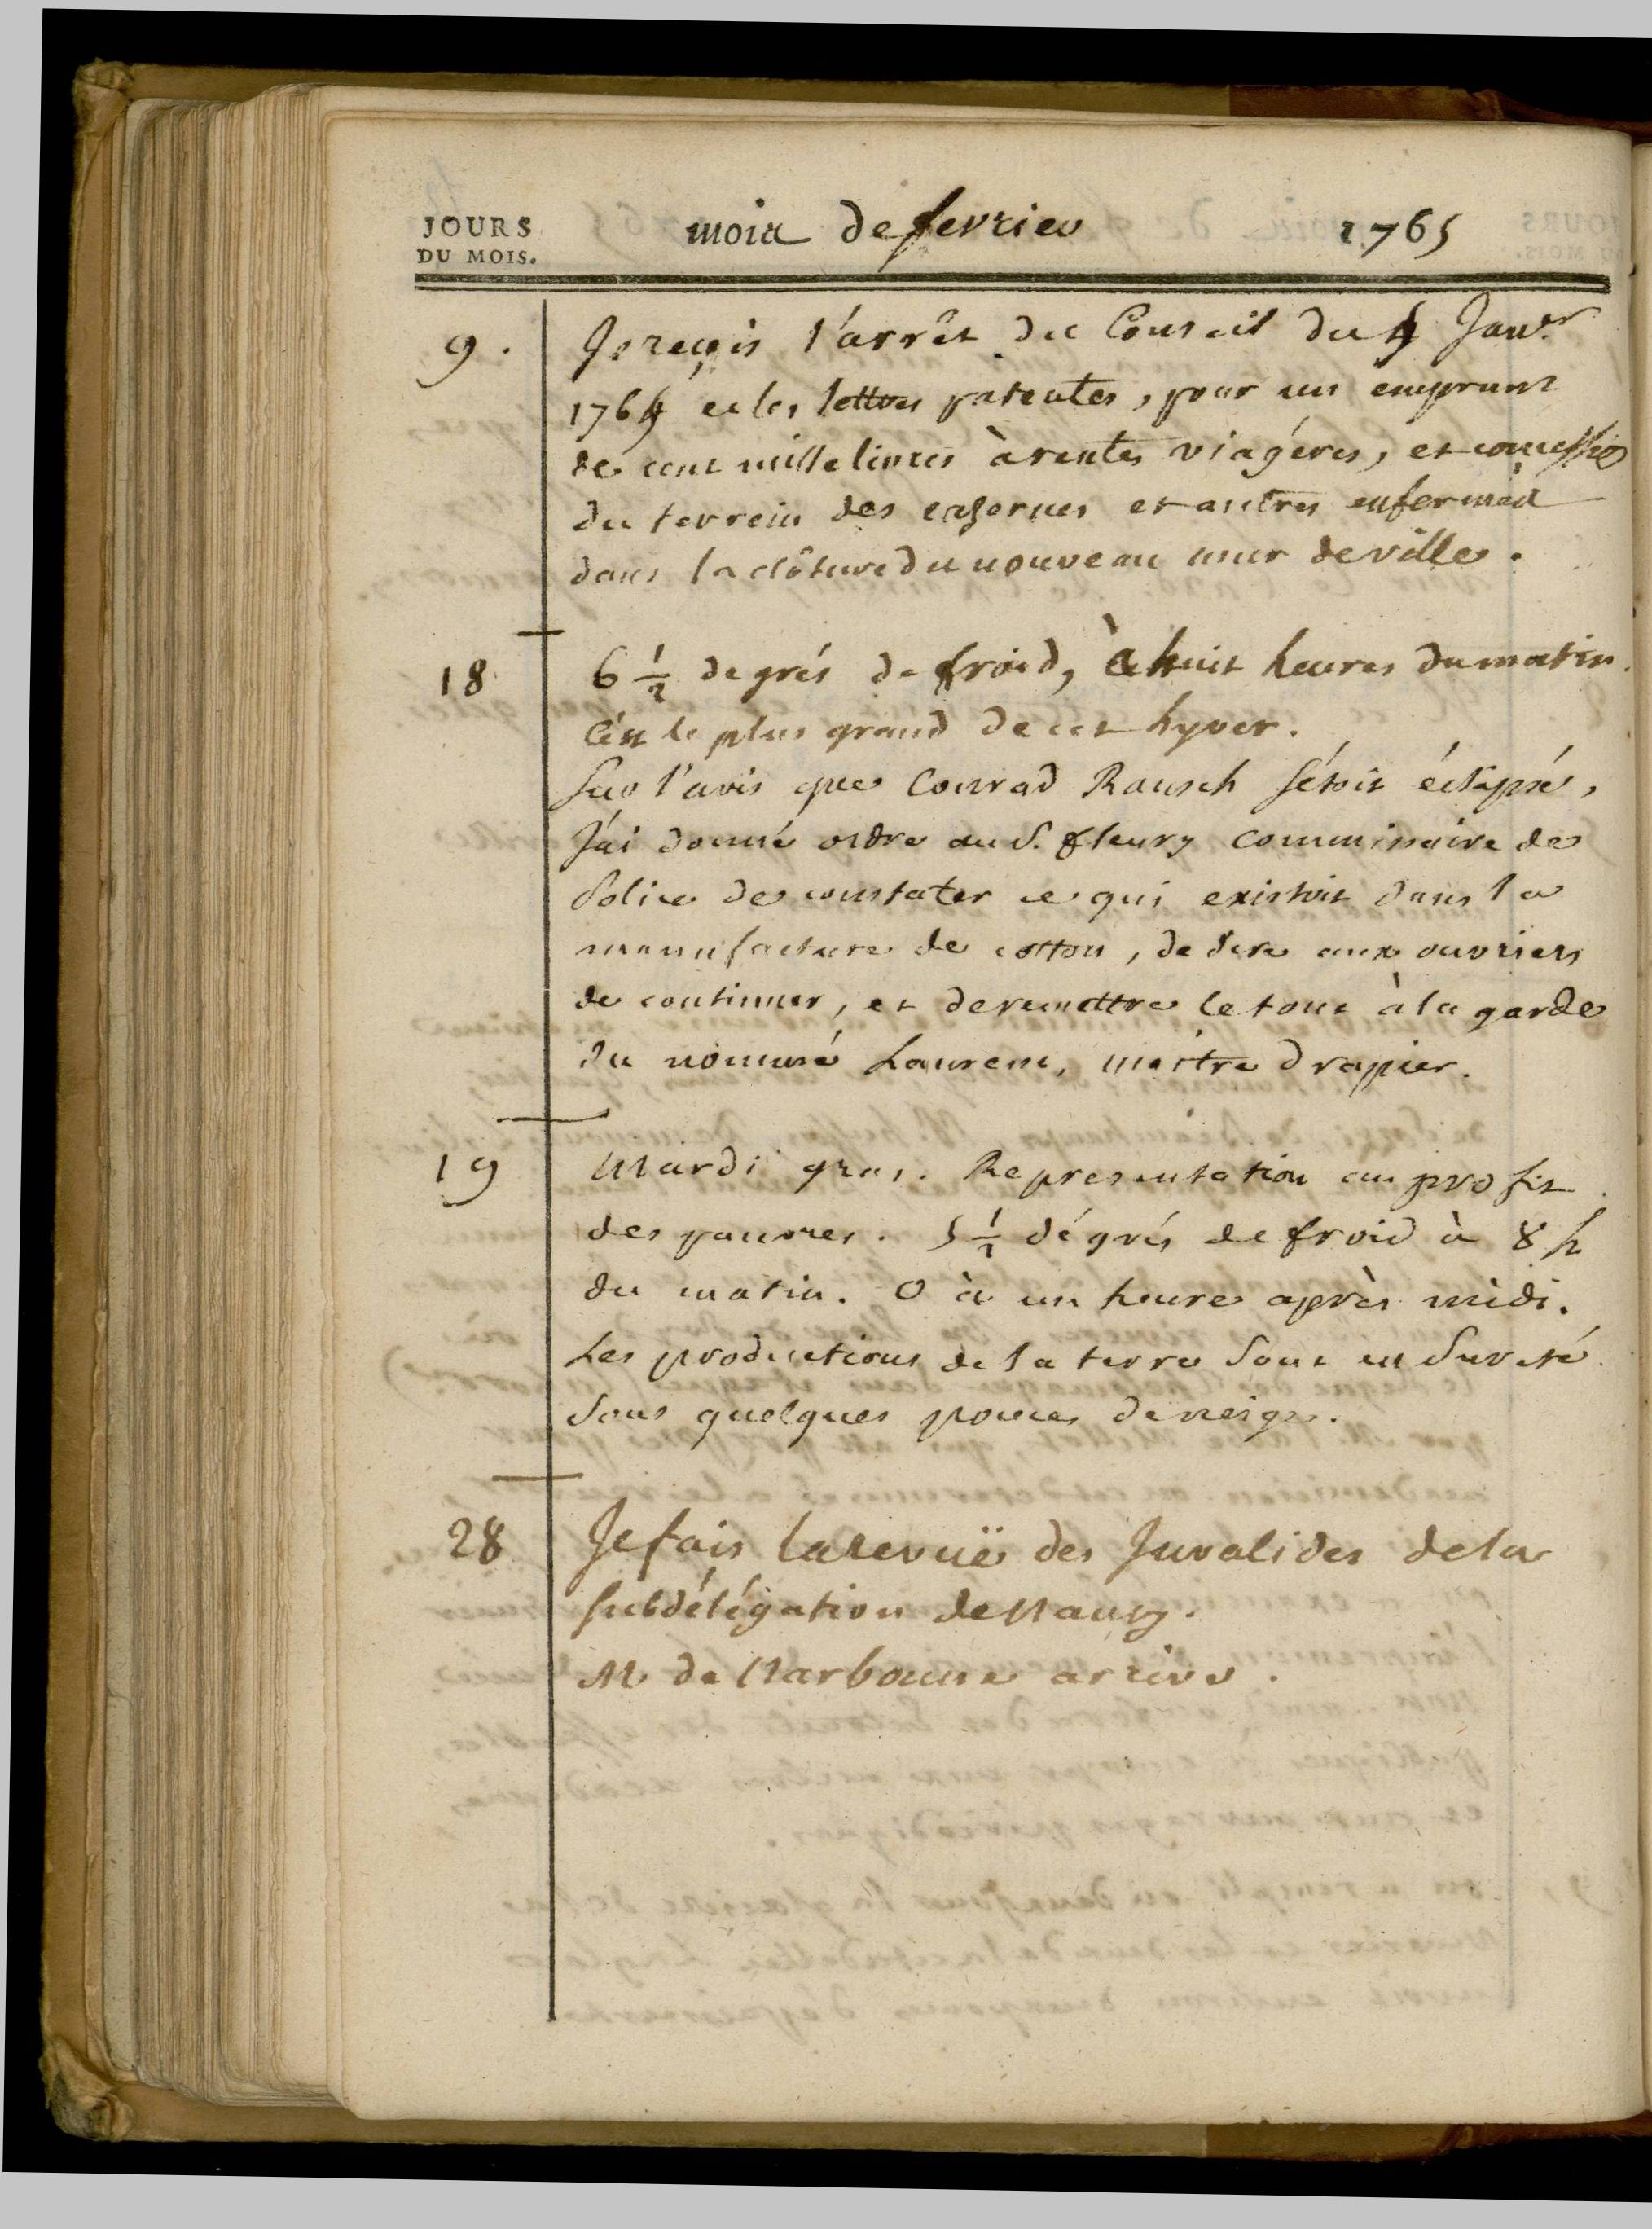 JOURS
DU MOIS.
mois de fevrier 1765
9. Je reçois l'arrêt du Conseil du 4 Janvr
1764 et les lettres patentes, pour un emprunt
de cent mille livres à rentes viagéres, et concession
du terrein des casernes et autres enfermés
dans la clôture du nouveau mur de ville.
18 6 1/2 degrés de froid, à huit heures du matin.
C'est le plus grand de cet hyver.
Sur l'avis que Conrad Rausch s'étoit éclipsé,
J'ai donné ordre au S. fleury Commissaire de
Police de constater ce qui existoit dans la
manufacture de cotton, de dire aux ouvriers
de continuer, et de remettre le tout à la garde
du nommé Laurent, maitre drapier.
19 Mardi gras. Representation au profit
des pauvres. 5 1/2 dégrés de froid à 8 h
du matin. 0 à un heure après midi.
Les productions de la terre sont en sureté
sous quelques pouces de neige.
28 Je fais la revuë des Invalides de la
subdélégation de Nancy.
M. de Narbonne arrive.